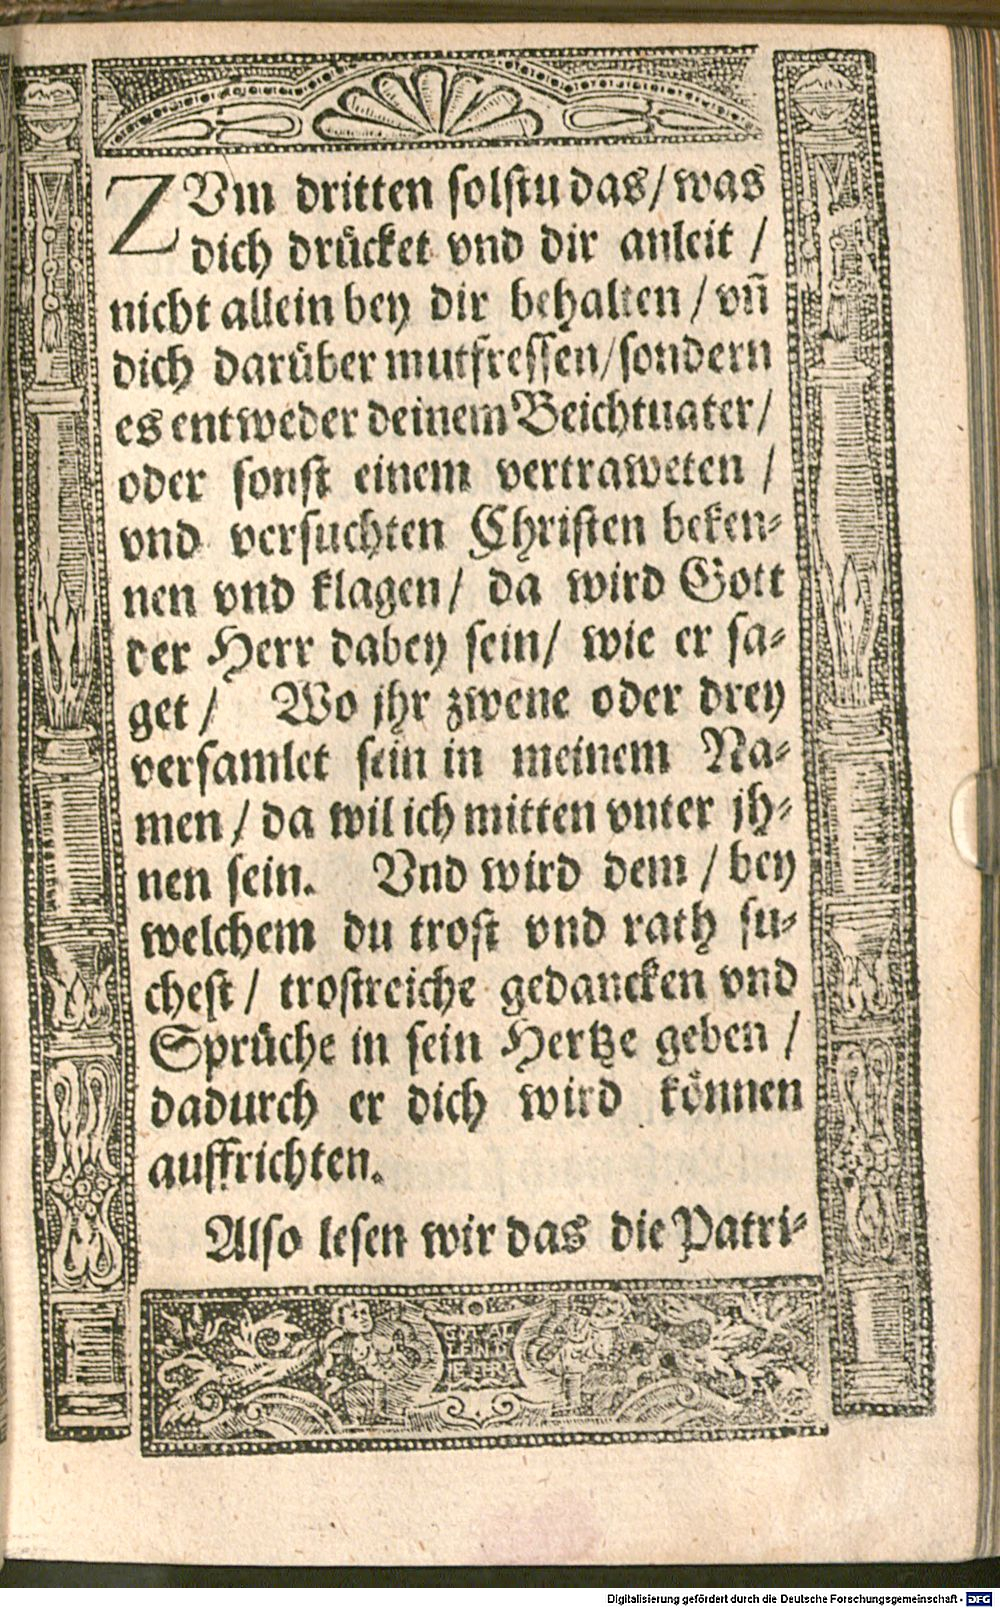 ZVm dritten solstu das/ was
dich drücket vnd dir anleit /
nicht allein bey dir behalten / vñ
dich darüber mutfressen/ sondern
es entweder deinem Beichtuater/
oder sonst einem vertraweten /
vnd versuchten Christen beken-
nen vnd klagen/ da wird Gott
der Herr dabey sein/ wie er sa-
get / Wo jhr zwene oder drey
versamlet sein in meinem Na-
men / da wil ich mitten vnter jh-
nen sein. Vnd wird dem / bey
welchem du trost vnd rath su-
chest / trostreiche gedancken vnd
Sprüche in sein Hertze geben /
dadurch er dich wird können
auffrichten.
Also lesen wir das die Patri-
Digitalisierung gefördert durch die Deutsche Forschungsgemeinschaft - DFG